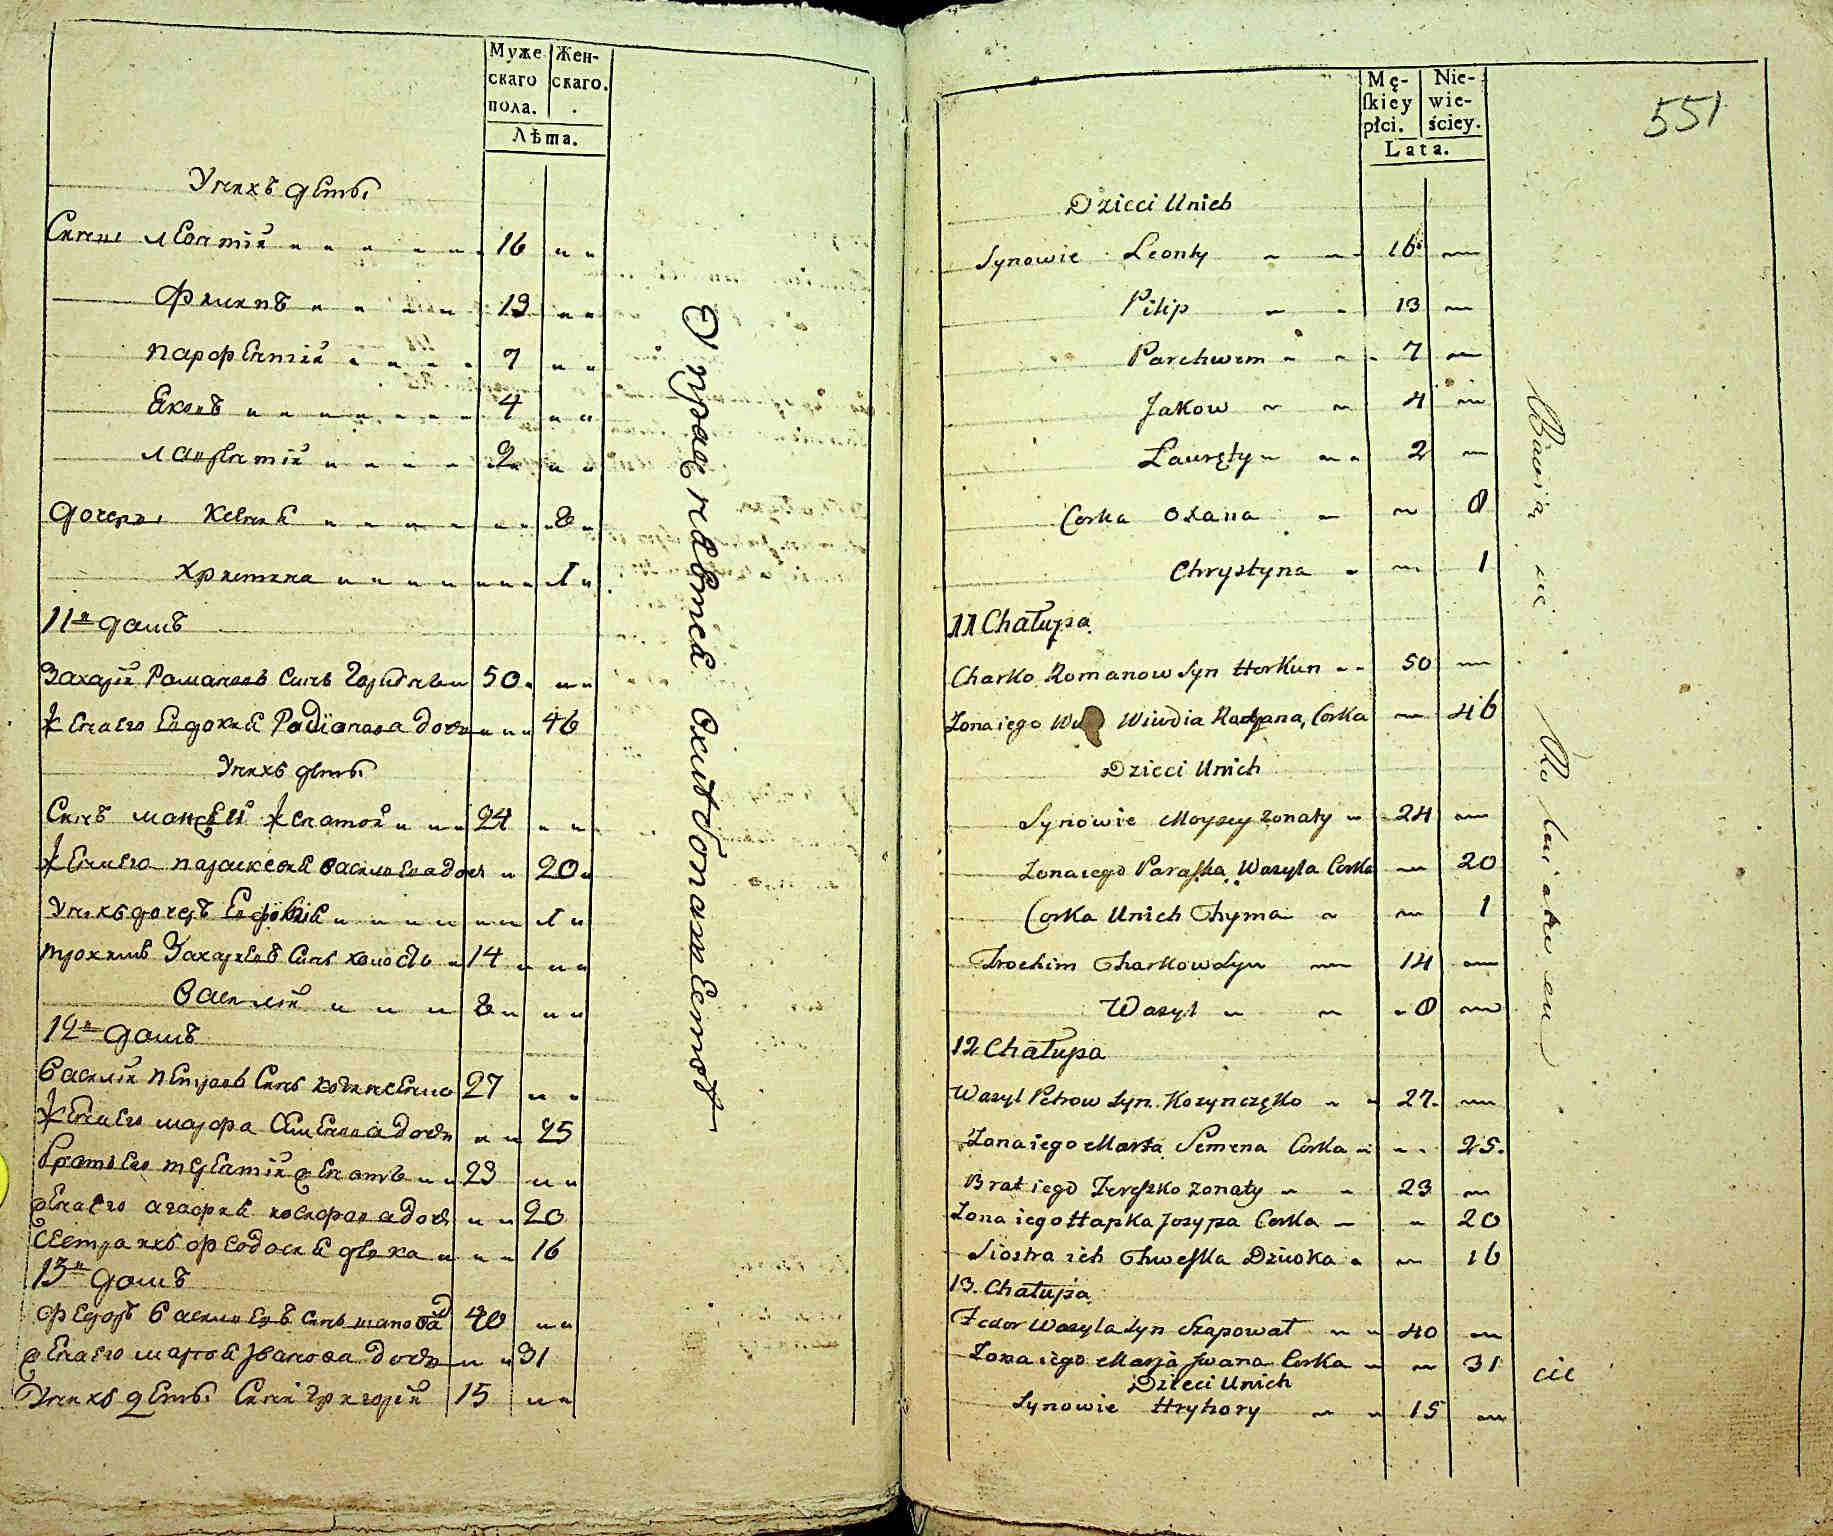 Муже скаго пола.
Жен- скаго.
Лѣта.
У нихъ дети
Сини леонтій 16
Филипъ 13
парфентій 7
Яковъ 4
лаврентій 2
дочери Ксения 8
христина 1
11й домъ
Захарій Романовъ Синъ 50
жена его Евдокия Радіонова дочь 46
У нихъ дети
Синъ мойсей женатой 24
жена его параскевия василиева дочь 20
У нихъ дочеръ Евфимія 1
трохимъ Захариевъ Синъ холостъ 14
василій 8
12й домъ
василій петровъ Синъ 27
жена его марфа Семенова дочь 25
братъ его терентій женатъ 23
жена его агафия иосифова дочь 20
сестра ихъ феодосия девка 16
13й домъ
федоръ василиевъ Синъ шаповал 40
жена его мария Іванова дочь 31
У нихъ дети Синъ григорій 15
551
Mę- skiey płci.
Nie- wie- ściey.
Lata.
Dzieci Unich
Synowie Leonty 16
Pilip 13
Parchwem 7
Jakow 4
Lauręty 2
Corka Oxana 8
Chrystyna 1
11 Chałupa
Charko Romanow Syn Horkun 50
Zona iego Wiwdia Radyana Corka 46
Dzieci Unich
Synowie Moysey Zonaty 24
Zona iego Paraska Wasyla Corka 20
Corka Unich Chyma 1
Trochim Charkow Syn 14
Wasyl 8
12 Chałupa
Wasyl Petrow Syn Kozynczęko 27
Zona iego Marta Semena Corka 25
Brat iego Tereszko Zonaty 23
Zona iego Hapka Jozypa Corka 20
Siostra ich Chweska Dziwka 16
13 Chałupa
Fedor Wasyla Syn Szapował 40
Zona iego Marja Jwana Corka 31
Dzieci Unich
Synowie Hryhory 15